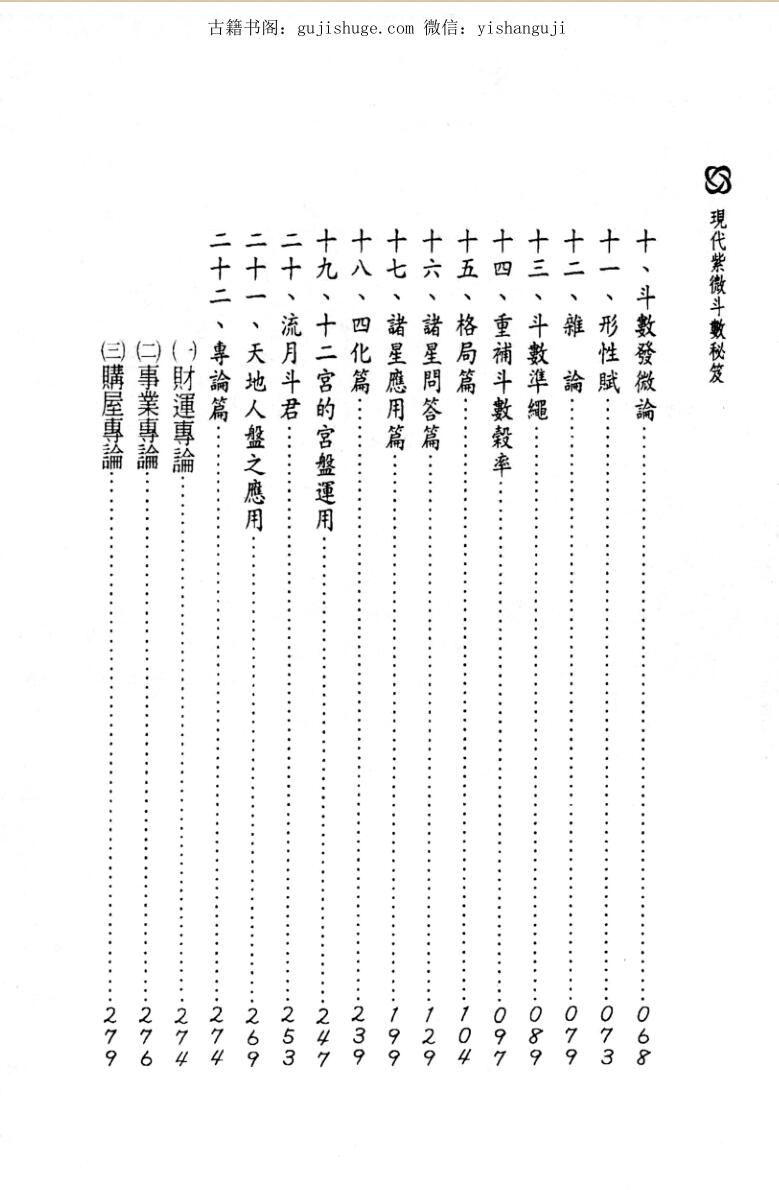 古籍书阁：gujishuge.com 微信：yishanguji
現代紫微斗數秘笈
十、斗數發微論……068
十一、形性賦……073
十二、雜　論……079
十三、斗數準繩……089
十四、重補斗數彀率……097
十五、格局篇……104
十六、諸星問答篇……129
十七、諸星應用篇……199
十八、四化篇……239
十九、十二宮的宮盤運用……247
二十、流月斗君……253
二十一、天地人盤之應用……269
二十二、專論篇……274
㈠財運專論……274
㈡事業專論……276
㈢購屋專論……279